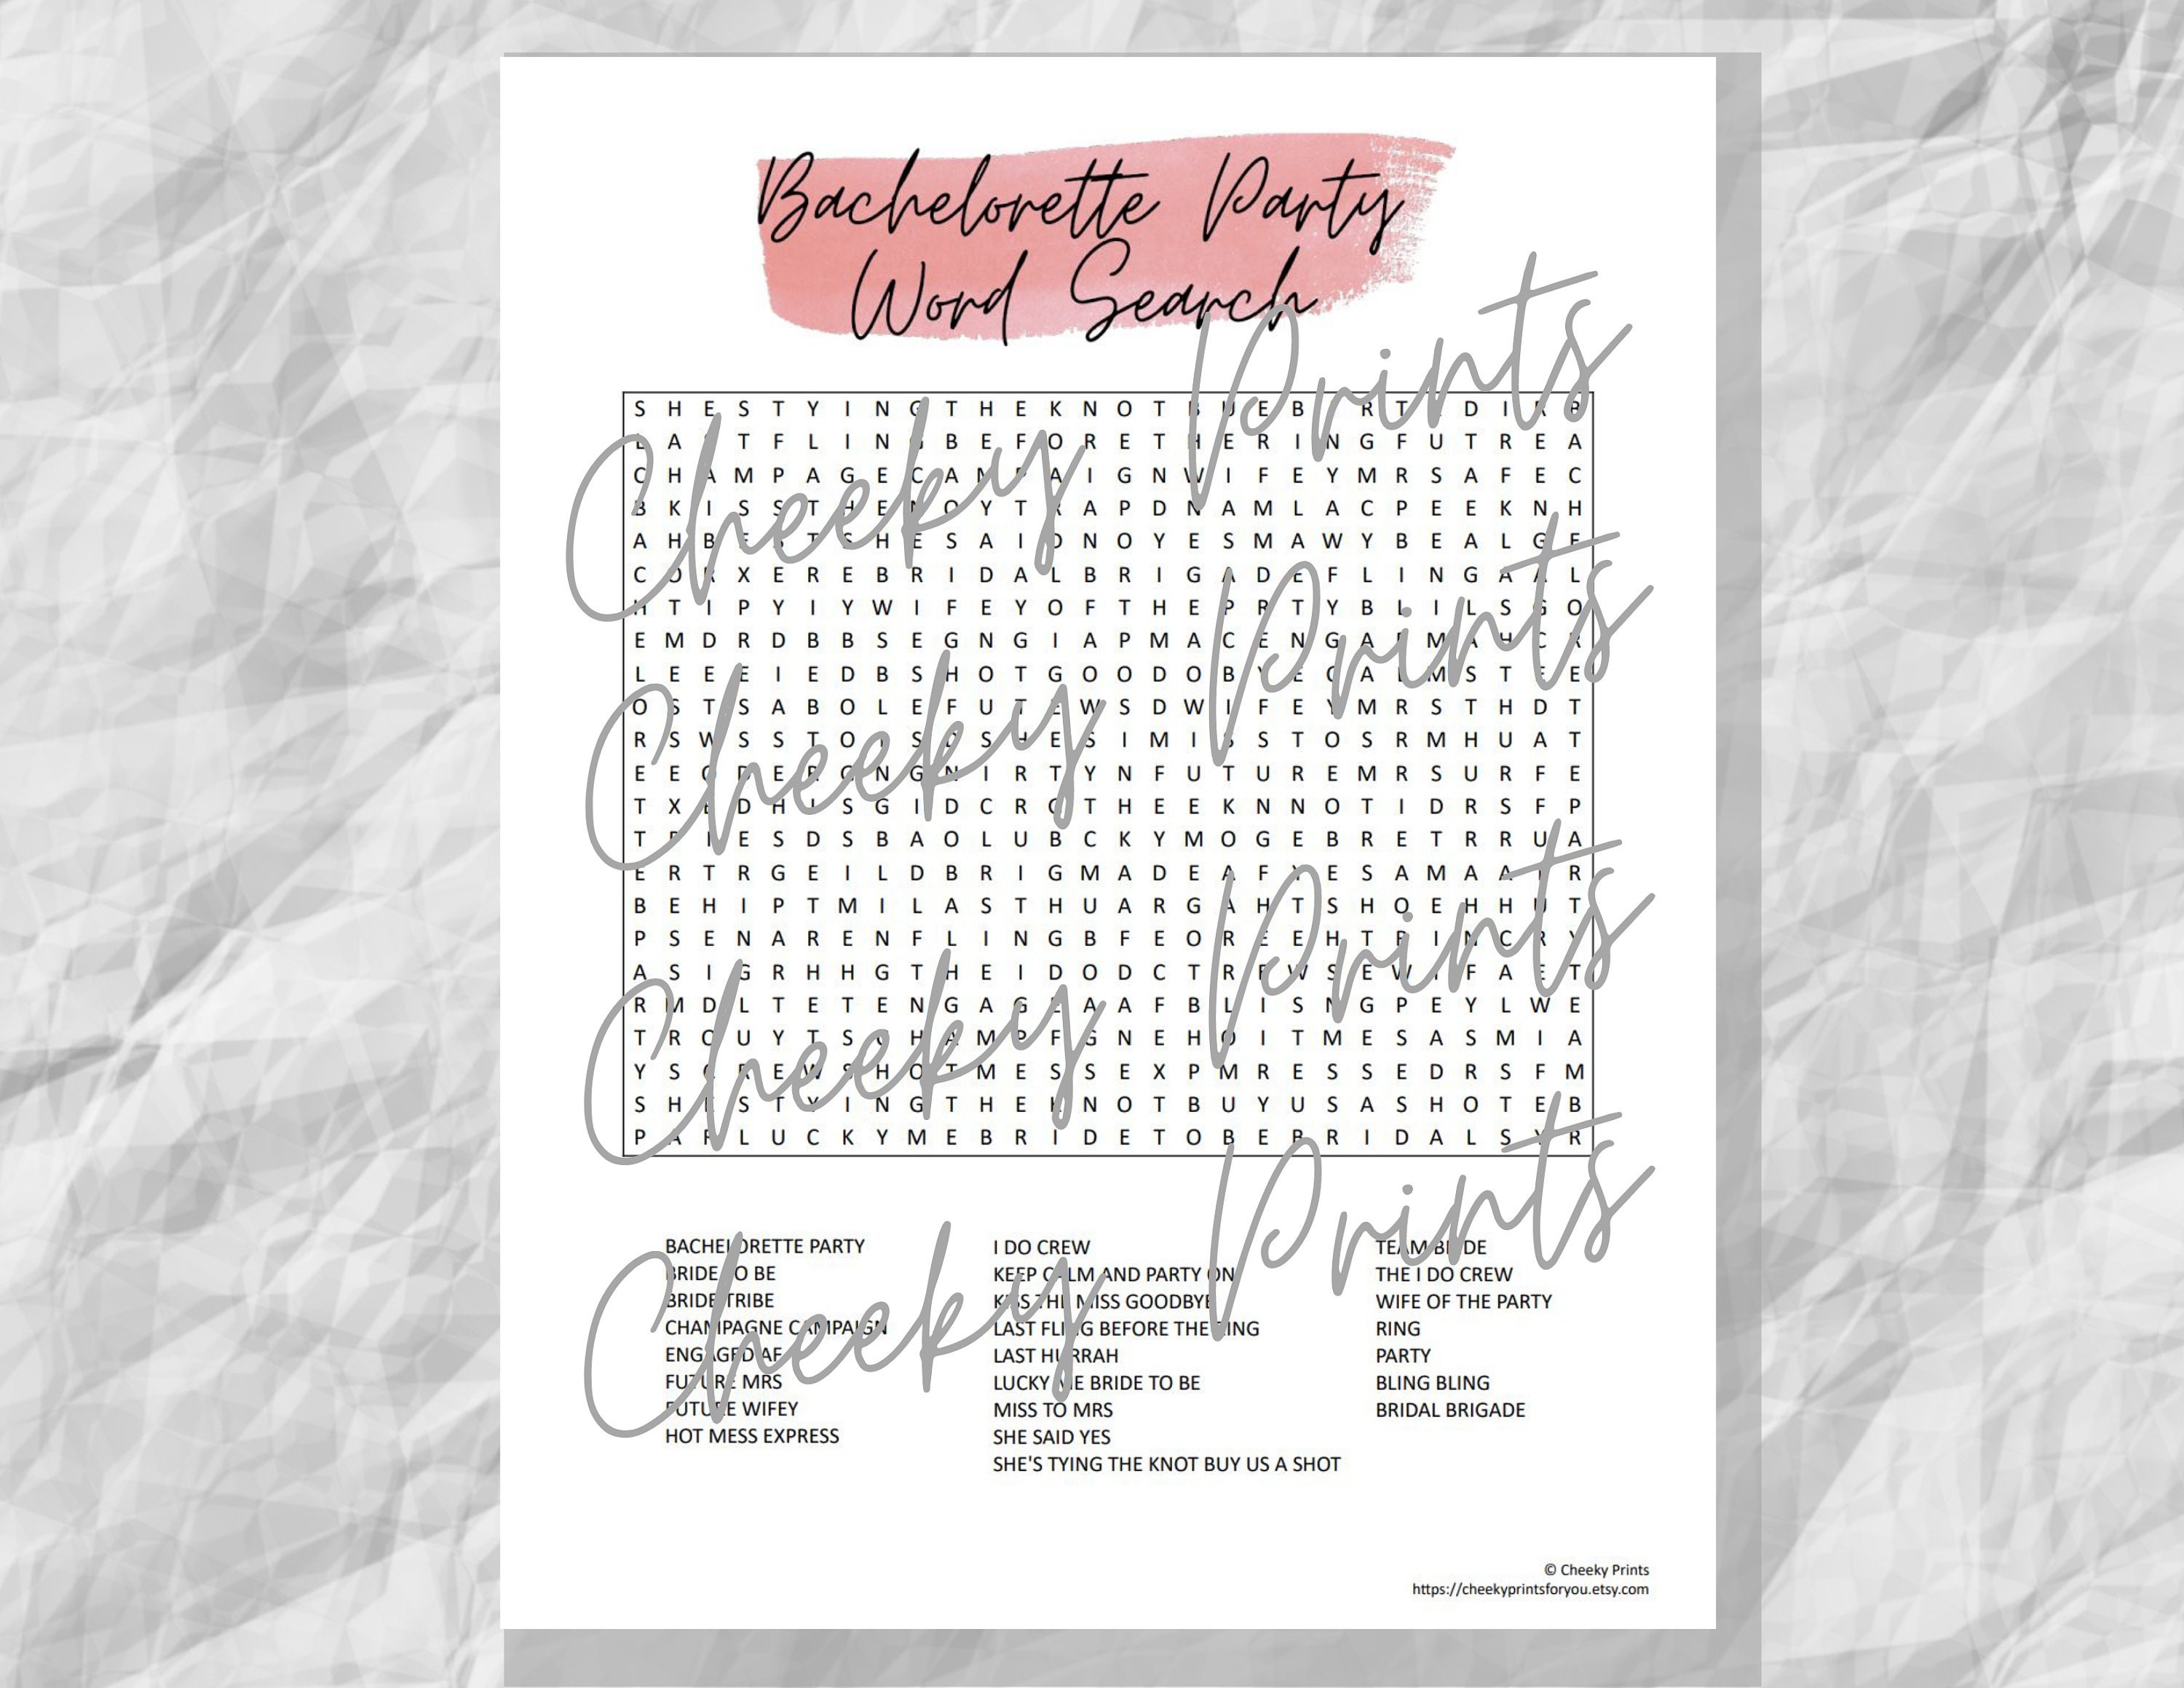 Bachelorette Party
Word Search
S H E S T Y I N G T H E K N O T B U E B R T D I R B
L A T F L I N G B E F O R E T H E R I N G F U T R E A
C H A M P A G E C A M P A I G N W I F E Y M R S A F E C
B K I S S T H E N O Y T R A P D N A M L A C P E E K N H
A H B E S T S H E S A I D N O Y E S M A W Y B E A L G E
C O R X E R E B R I D A L B R I G A D E F L I N G A A L
H T I P Y I Y W I F E Y O F T H E P R T Y B L I L S G O
E M D R D B B S E G N G I A P M A C E N G A P M A H C R
L E E E I E D B S H O T G O O D O B Y E C A L M S T E E
O S T S A B O L E F U T E W S D W I F E Y M R S T H D T
R S W S S T O I S D S H E S I M I S S T O S R M H U A T
E E O D E R O N G N I R T Y N F U T U R E M R S U R F E
T X E D H I S G I D C R O T H E E K N N O T I D R S F P
T P I E S D S B A O L U B C K Y M O G E B R E T R R U A
E R T R G E I L D B R I G M A D E A F Y E S A M A A R
B E H I P T M I L A S T H U A R G A H T S H O E H H U T
P S E N A R E N F L I N G B F E O R E E H T R I N C R Y
A S I G R H H G T H E I D O D C T R E W S E W I F A E T
R M D L T E T E N G A G E A A F B L I S N G P E Y L W E
T R O U Y T S C H A M P F G N E H O I T M E S A S M I A
Y S C R E W S H O T M E S S E X P M R E S S E D R S F M
S H E S T Y I N G T H E K N O T B U Y U S A S H O T E B
P A R L U C K Y M E B R I D E T O B E B R I D A L S Y R
BACHELORETTE PARTY
BRIDE TO BE
BRIDE TRIBE
CHAMPAGNE CAMPAIGN
ENGAGED AF
FUTURE MRS
FUTURE WIFEY
HOT MESS EXPRESS
I DO CREW
KEEP CALM AND PARTY ON
KISS THE MISS GOODBYE
LAST FLING BEFORE THE RING
LAST HURRAH
LUCKY ME BRIDE TO BE
MISS TO MRS
SHE SAID YES
SHE'S TYING THE KNOT BUY US A SHOT
TEAM BRIDE
THE I DO CREW
WIFE OF THE PARTY
RING
PARTY
BLING BLING
BRIDAL BRIGADE
Cheeky Prints
Cheeky Prints
Cheeky Prints
Cheeky Prints
© Cheeky Prints
https://cheekyprintsforyou.etsy.com